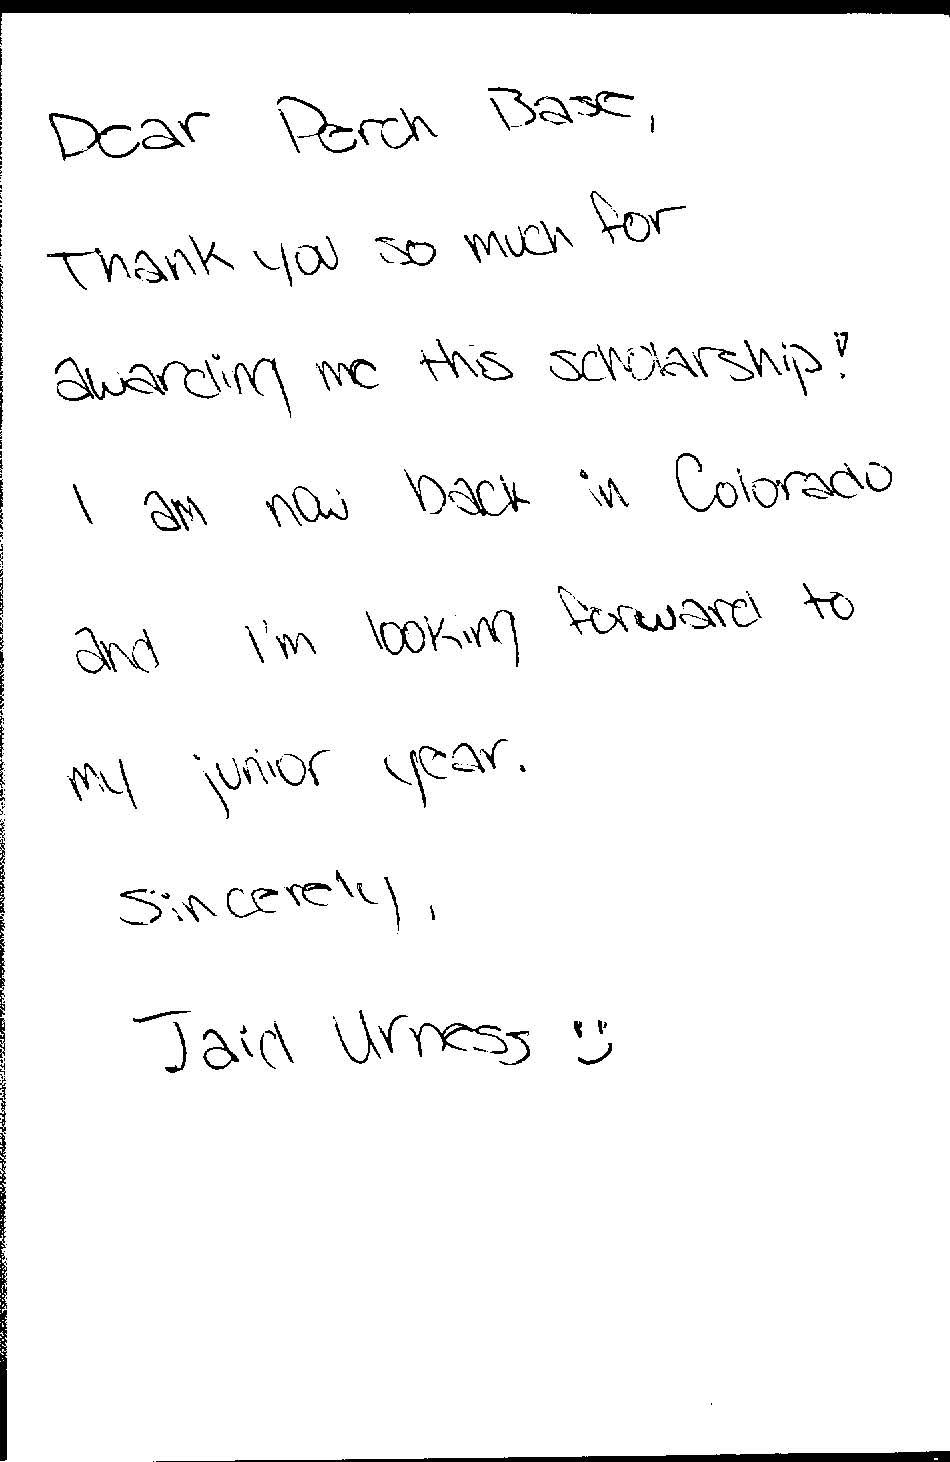 Dear Perch Base,
Thank you so much for
awarding me this scholarship!
I am now back in Colorado
and I'm looking forward to
my junior year.
Sincerely,
Jaid Urness :)